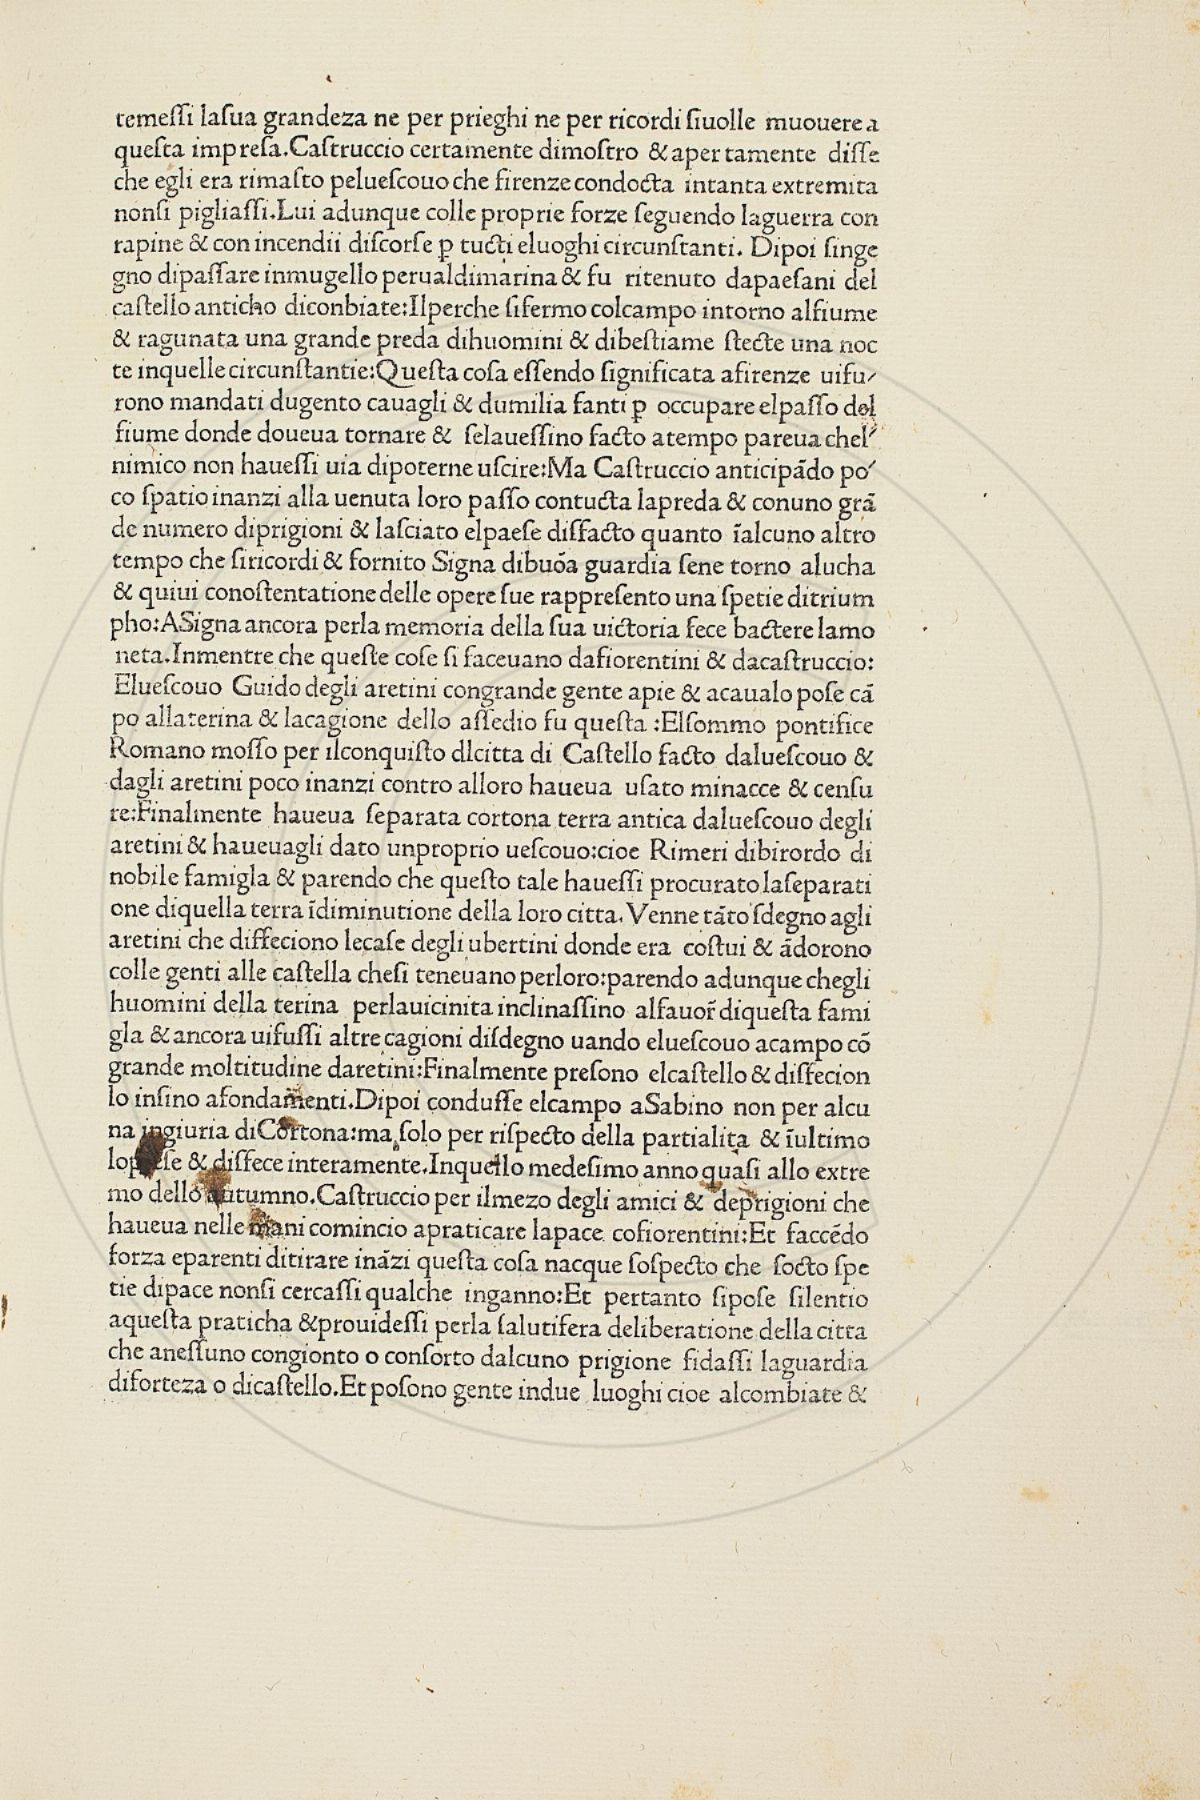 temeſſi laſua grandeza ne per prieghi ne per ricordi ſiuolle muouere a
queſta impreſa.Caſtruccio certamente dimoſtro & aper tamente diſſe
che egli era rimaſto pelueſcouo che firenze condocta intanta extremita
nonſi pigliaſſi.Lui adunque colle proprie forze ſeguendo laguerra con
rapine & con incendii diſcorſe ꝑ tucti eluoghi circunſtanti. Dipoi ſinge
gno dipaſſare inmugello perualdimarina & fu ritenuto dapaeſani del
caſtello anticho diconbiate:Ilperche ſifermo colcampo intorno alfiume
& ragunata una grande preda dihuomini & dibeſtiame ſtecte una noc
te inquelle circunſtantie:Queſta coſa eſſendo ſignificata afirenze uifu⸗
rono mandati dugento cauagli & dumilia fanti ꝑ occupare elpaſſo del
fiume donde doueua tornare & ſelaueſſino facto atempo pareua chel⸗
nimico non haueſſi uia dipoterne uſcire:Ma Caſtruccio anticipādo po⸗
co ſpatio inanzi alla uenuta loro paſſo contucta lapreda & conuno grā
de numero diprigioni & laſciato elpaeſe diſfacto quanto īalcuno altro
tempo che ſiricordi & fornito Signa dibuōa guardia ſene torno alucha
& quiui conoſtentatione delle opere ſue rappreſento una ſpetie ditrium
pho:ASigna ancora perla memoria della ſua uictoria fece bactere lamo
neta.Inmentre che queſte coſe ſi faceuano dafiorentini & dacaſtruccio:
Elueſcouo Guido degli aretini congrande gente apie & acaualo poſe cā
po allaterina & lacagione dello aſſedio fu queſta :Elſommo pontifice
Romano moſſo per ilconquiſto dlcitta di Caſtello facto dalueſcouo &
dagli aretini poco inanzi contro alloro haueua uſato minacce & cenſu
re:Finalmente haueua ſeparata cortona terra antica dalueſcouo degli
aretini & haueuagli dato unproprio ueſcouo:cioe Rimeri dibirordo di
nobile famigla & parendo che queſto tale haueſſi procurato laſeparati
one diquella terra īdiminutione della loro citta. Venne tāto ſdegno agli
aretini che diffeciono lecaſe degli ubertini donde era coſtui & ādorono
colle genti alle caſtella cheſi teneuano perloro:parendo adunque chegli
huomini della terina perlauicinita inclinaſſino alfauor̄ diqueſta fami
gla & ancora uifuſſi altre cagioni diſdegno uando elueſcouo acampo cō
grande moltitudine daretini:Finalmente preſono elcaſtello & diſfecion
lo inſino afondamenti.Dipoi conduſſe elcampo aSabino non per alcu
na ingiuria diCortona:ma ſolo per riſpecto della partialita & īultimo
lopreſe & diſfece interamente.Inquello medeſimo anno quaſi allo extre
mo dello autumno.Caſtruccio per ilmezo degli amici & deprigioni che
haueua nelle mani comincio apraticare lapace cofiorentini:Et faccēdo
forza eparenti ditirareināzi queſta coſa nacque ſoſpecto che ſocto ſpe
tie dipace nonſi cercaſſi qualche inganno:Et pertanto ſipoſe ſilentio
aqueſta praticha &prouideſſi perla ſalutifera deliberatione della citta
che aneſſuno congionto o conſorto dalcuno prigione fidaſſi laguardia
diforteza o dicaſtello.Et poſono gente indue luoghi cioe alcombiate &